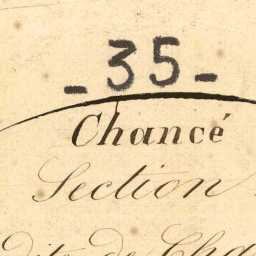 - 35 -
Chancé
Section
dite de Cha